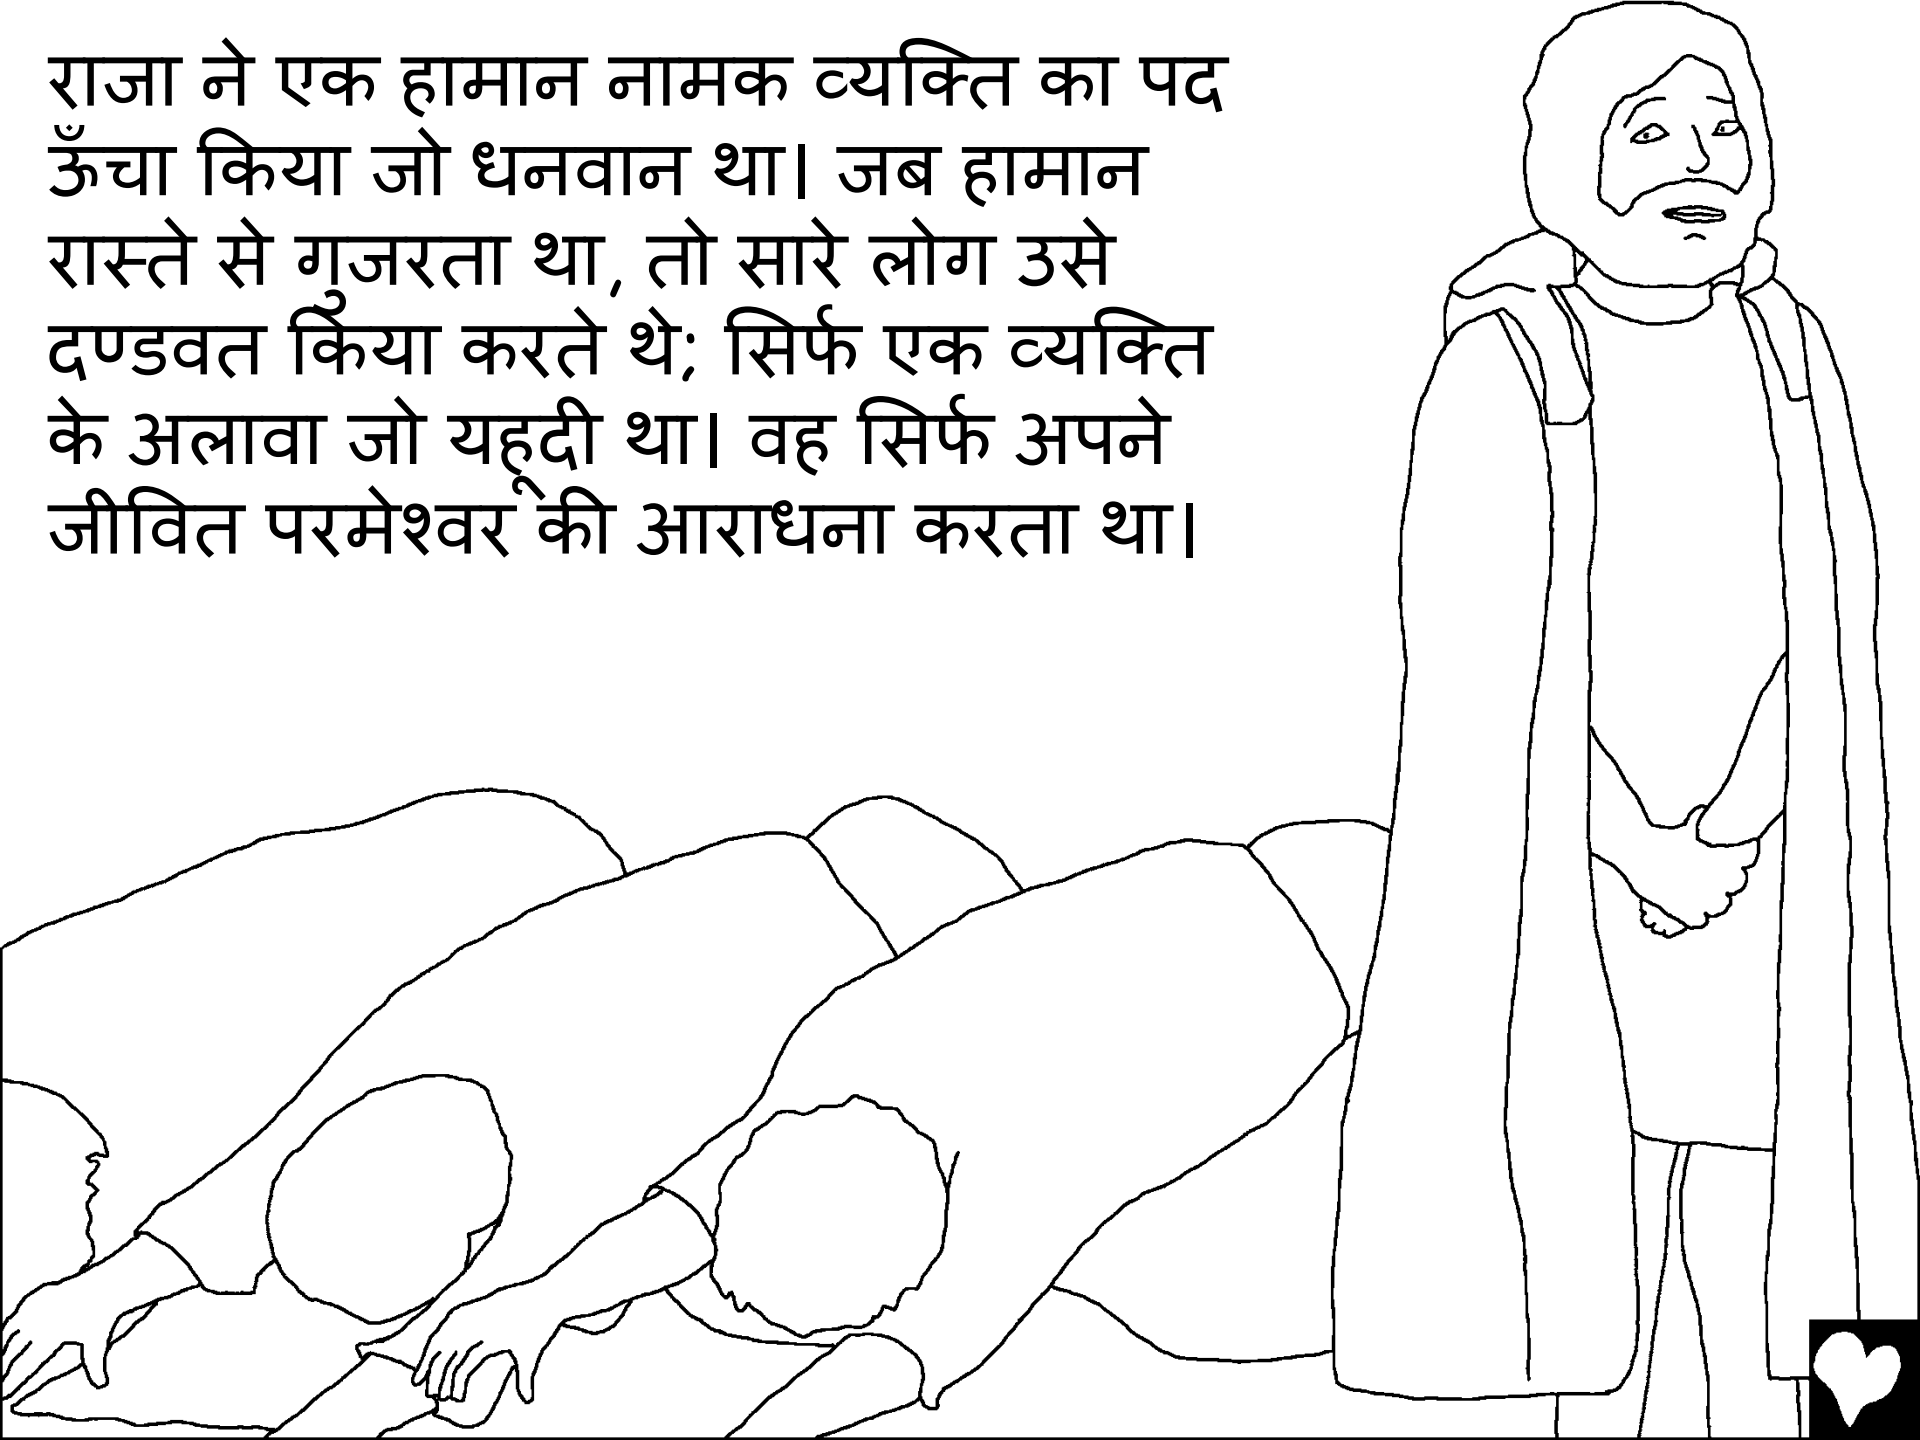 राजा ने एक हामान नामक व्यक्ति का पद
ऊँचा किया जो धनवान था। जब हामान
रास्ते से गुजरता था, तो सारे लोग उसे
दण्डवत किया करते थे; सिर्फ एक व्यक्ति
के अलावा जो यहूदी था। वह सिर्फ अपने
जीवित परमेश्वर की आराधना करता था।